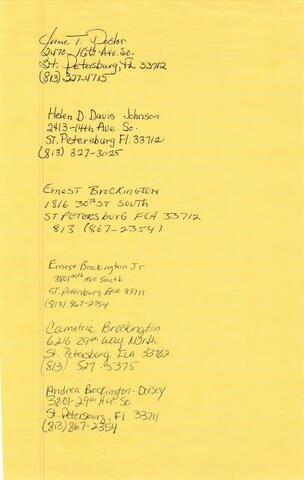 Irene T. Doctor
2470 - 16th Ave. So.
St. Petersburg, FL 33712
(813) 327-4715
Helen D. Davis Johnson
2413-14th Ave. So.
St. Petersburg Fl. 33712
(813) 327-3025
Ernest Brockington
1816 30th ST South
ST PETERSBURG FLA 33712
813 (867-2354)
Ernest Brockington Jr
3801 29th Ave South
ST. Petersburg FLA 33711
(813) 867-2354
Cametria Brockington
6216 29th Way North
St. Petersburg FLA 33702
(813) 527-5375
Andrea Brockington-Dorsey
3801-29th Ave. So.
St. Petersburg, Fl 33711
(813) 867-2354